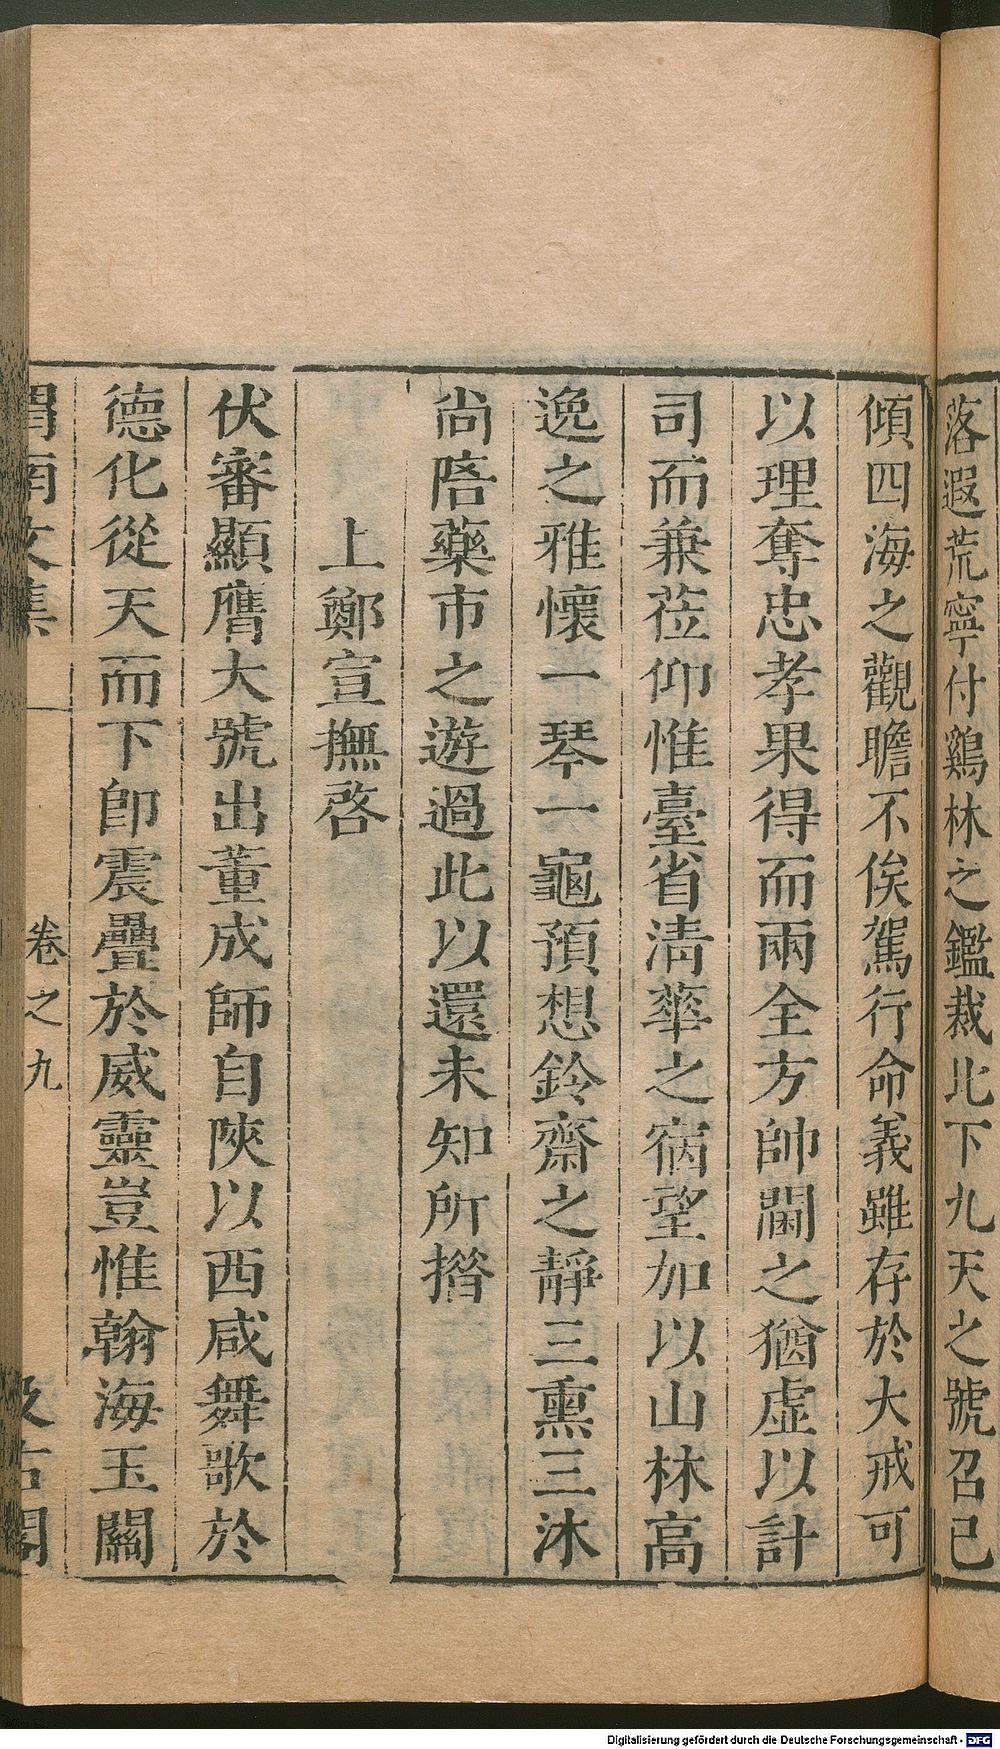 落遐荒寧付鷄林之鑑裁北下九天之號召已
傾四海之觀瞻不俟駕行命義雖存於大戒可
以理奪忠孝果得而兩全方帥閫之猶虛以計
司而兼莅仰惟臺省清華之宿望加以山林高
逸之雅懷一琴一龜預想鈴齋之靜三熏三沐
尚陪藥市之遊過此以還未知所措
上鄭宣撫啓
伏審顯膺大號出董成師自陝以西咸舞歌於
德化從天而下卽震疊於威靈豈惟翰海玉關
渭南文集 卷之九 汲古閣
Digitalisierung gefördert durch die Deutsche Forschungsgemeinschaft - DFG